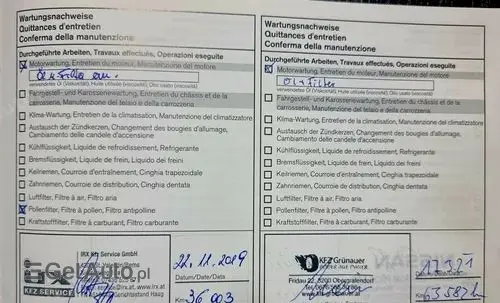 Wartungsnachweise
Quittances d'entretien
Conferma della manutenzione
Durchgeführte Arbeiten, Travaux effectués, Operazioni eseguite
Motorwartung, Entretien du moteur, Manutenzione del motore
Öl + Filter ern.
verwendetes Öl (Viskosität), Huile utilisée (viscosité), Olio usato (viscosità)
Fahrgestell- und Karosseriewartung, Entretien du châssis et de la
carrosserie, Manutenzione del telaio e della carrozzeria
Klima-Wartung, Entretien de la climatisation, Manutenzione del climatizzatore
Austausch der Zündkerzen, Changement des bougies d'allumage,
Cambiamento delle candele d'accensione
Kühlflüssigkeit, Liquide de refroidissement, Refrigerante
Bremsflüssigkeit, Liquide de frein, Liquido dei freini
Keilriemen, Courroie d'entraînement, Cinghia trapezoidale
Zahnriemen, Courroie de distribution, Cinghia dentata
Luftfilter, Filtre à air, Filtro aria
Pollenfilter, Filtre à pollen, Filtro antipolline
Kraftstofffilter, Filtre à carburant, Filtro carburante
IRX Kfz Service GmbH
KFZ SERVICE
22.11.2019
Datum/Date/Data
36 003
GetAuto.pl
Wartungsnachweise
Quittances d'entretien
Conferma della manutenzione
Durchgeführte Arbeiten, Travaux effectués, Operazioni eseguite
Motorwartung, Entretien du moteur, Manutenzione del motore
Öl + Filter
verwendetes Öl (Viskosität), Huile utilisée (viscosité), Olio usato (viscosità)
Fahrgestell- und Karosseriewartung, Entretien du châssis et de la
carrosserie, Manutenzione del telaio e della carrozzeria
Klima-Wartung, Entretien de la climatisation, Manutenzione del climatizzatore
Austausch der Zündkerzen, Changement des bougies d'allumage,
Cambiamento delle candele d'accensione
Kühlflüssigkeit, Liquide de refroidissement, Refrigerante
Bremsflüssigkeit, Liquide de frein, Liquido dei freini
Keilriemen, Courroie d'entraînement, Cinghia trapezoidale
Zahnriemen, Courroie de distribution, Cinghia dentata
Luftfilter, Filtre à air, Filtro aria
Pollenfilter, Filtre à pollen, Filtro antipolline
Kraftstofffilter, Filtre à carburant, Filtro carburante
KFZ Grünauer
Datum/Date/Data